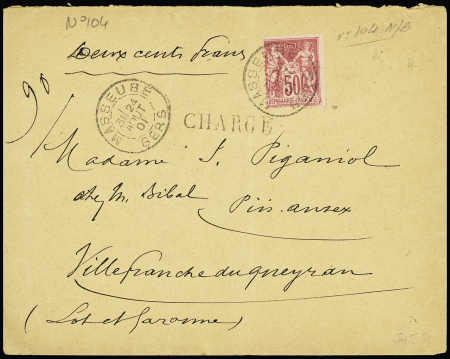 N° 104
n° 104 N/B
Deux cents francs
50
REPUBLIQUE FRANCAISE
MASSEUBE
GERS
24
AOUT
01
CHARGÉ
90
Madame S. Piganiol
chez M. Bibal
Villefranche du queyran
(Lot et Garonne)